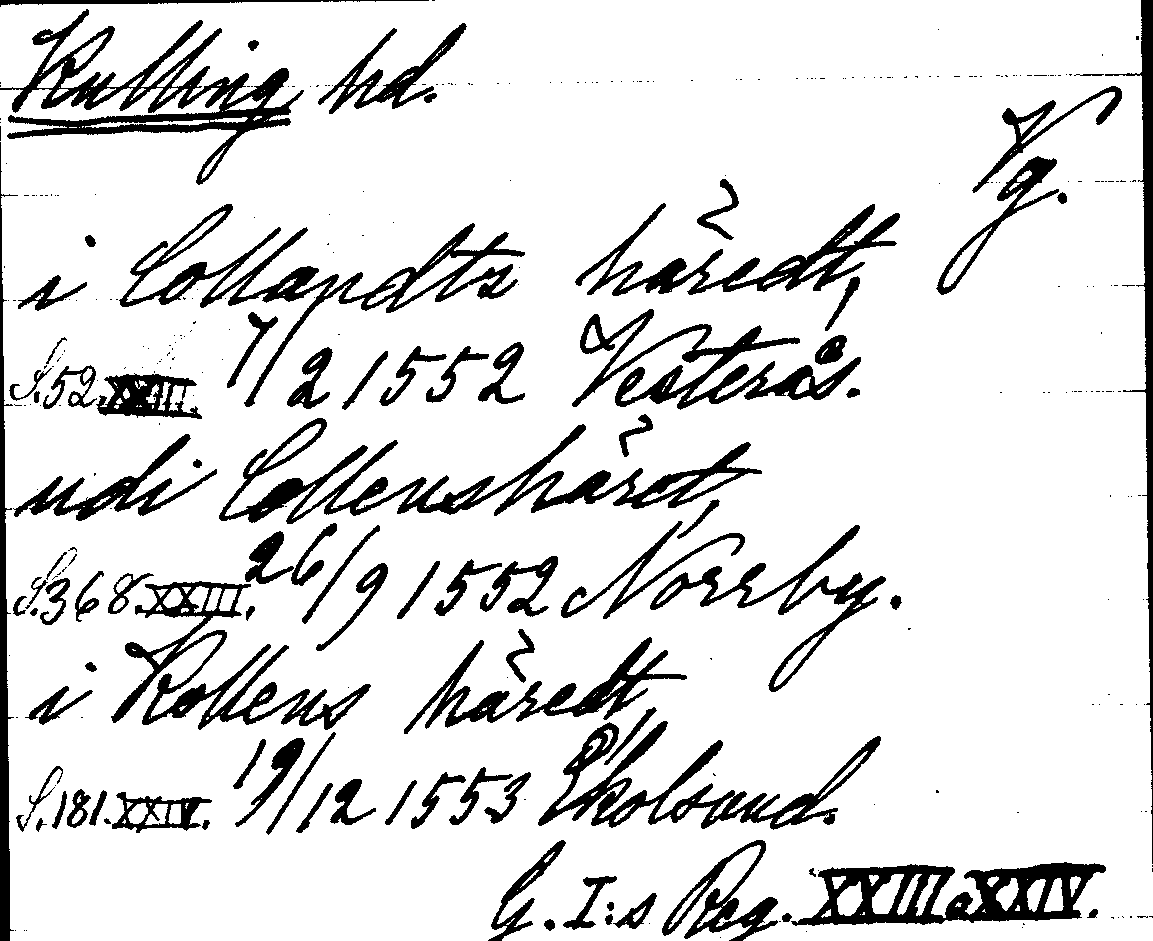 Kulling hd.
Vg.
i Collandts häredt,
S.52.XXIII. 7/2 1552 Vesterås.
udi Collenshärdt,
S.368.XXIII. 26/9 1552 Norrby.
i Kollens häredt,
S.181.XXIV. 19/12 1553 Ekolsund.
G. I:s Reg. XXIII o XXIV.